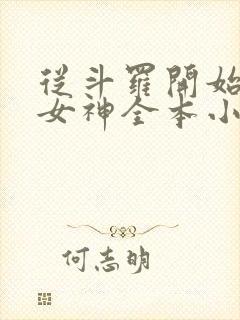 從斗羅開始
女神全本小
何志明